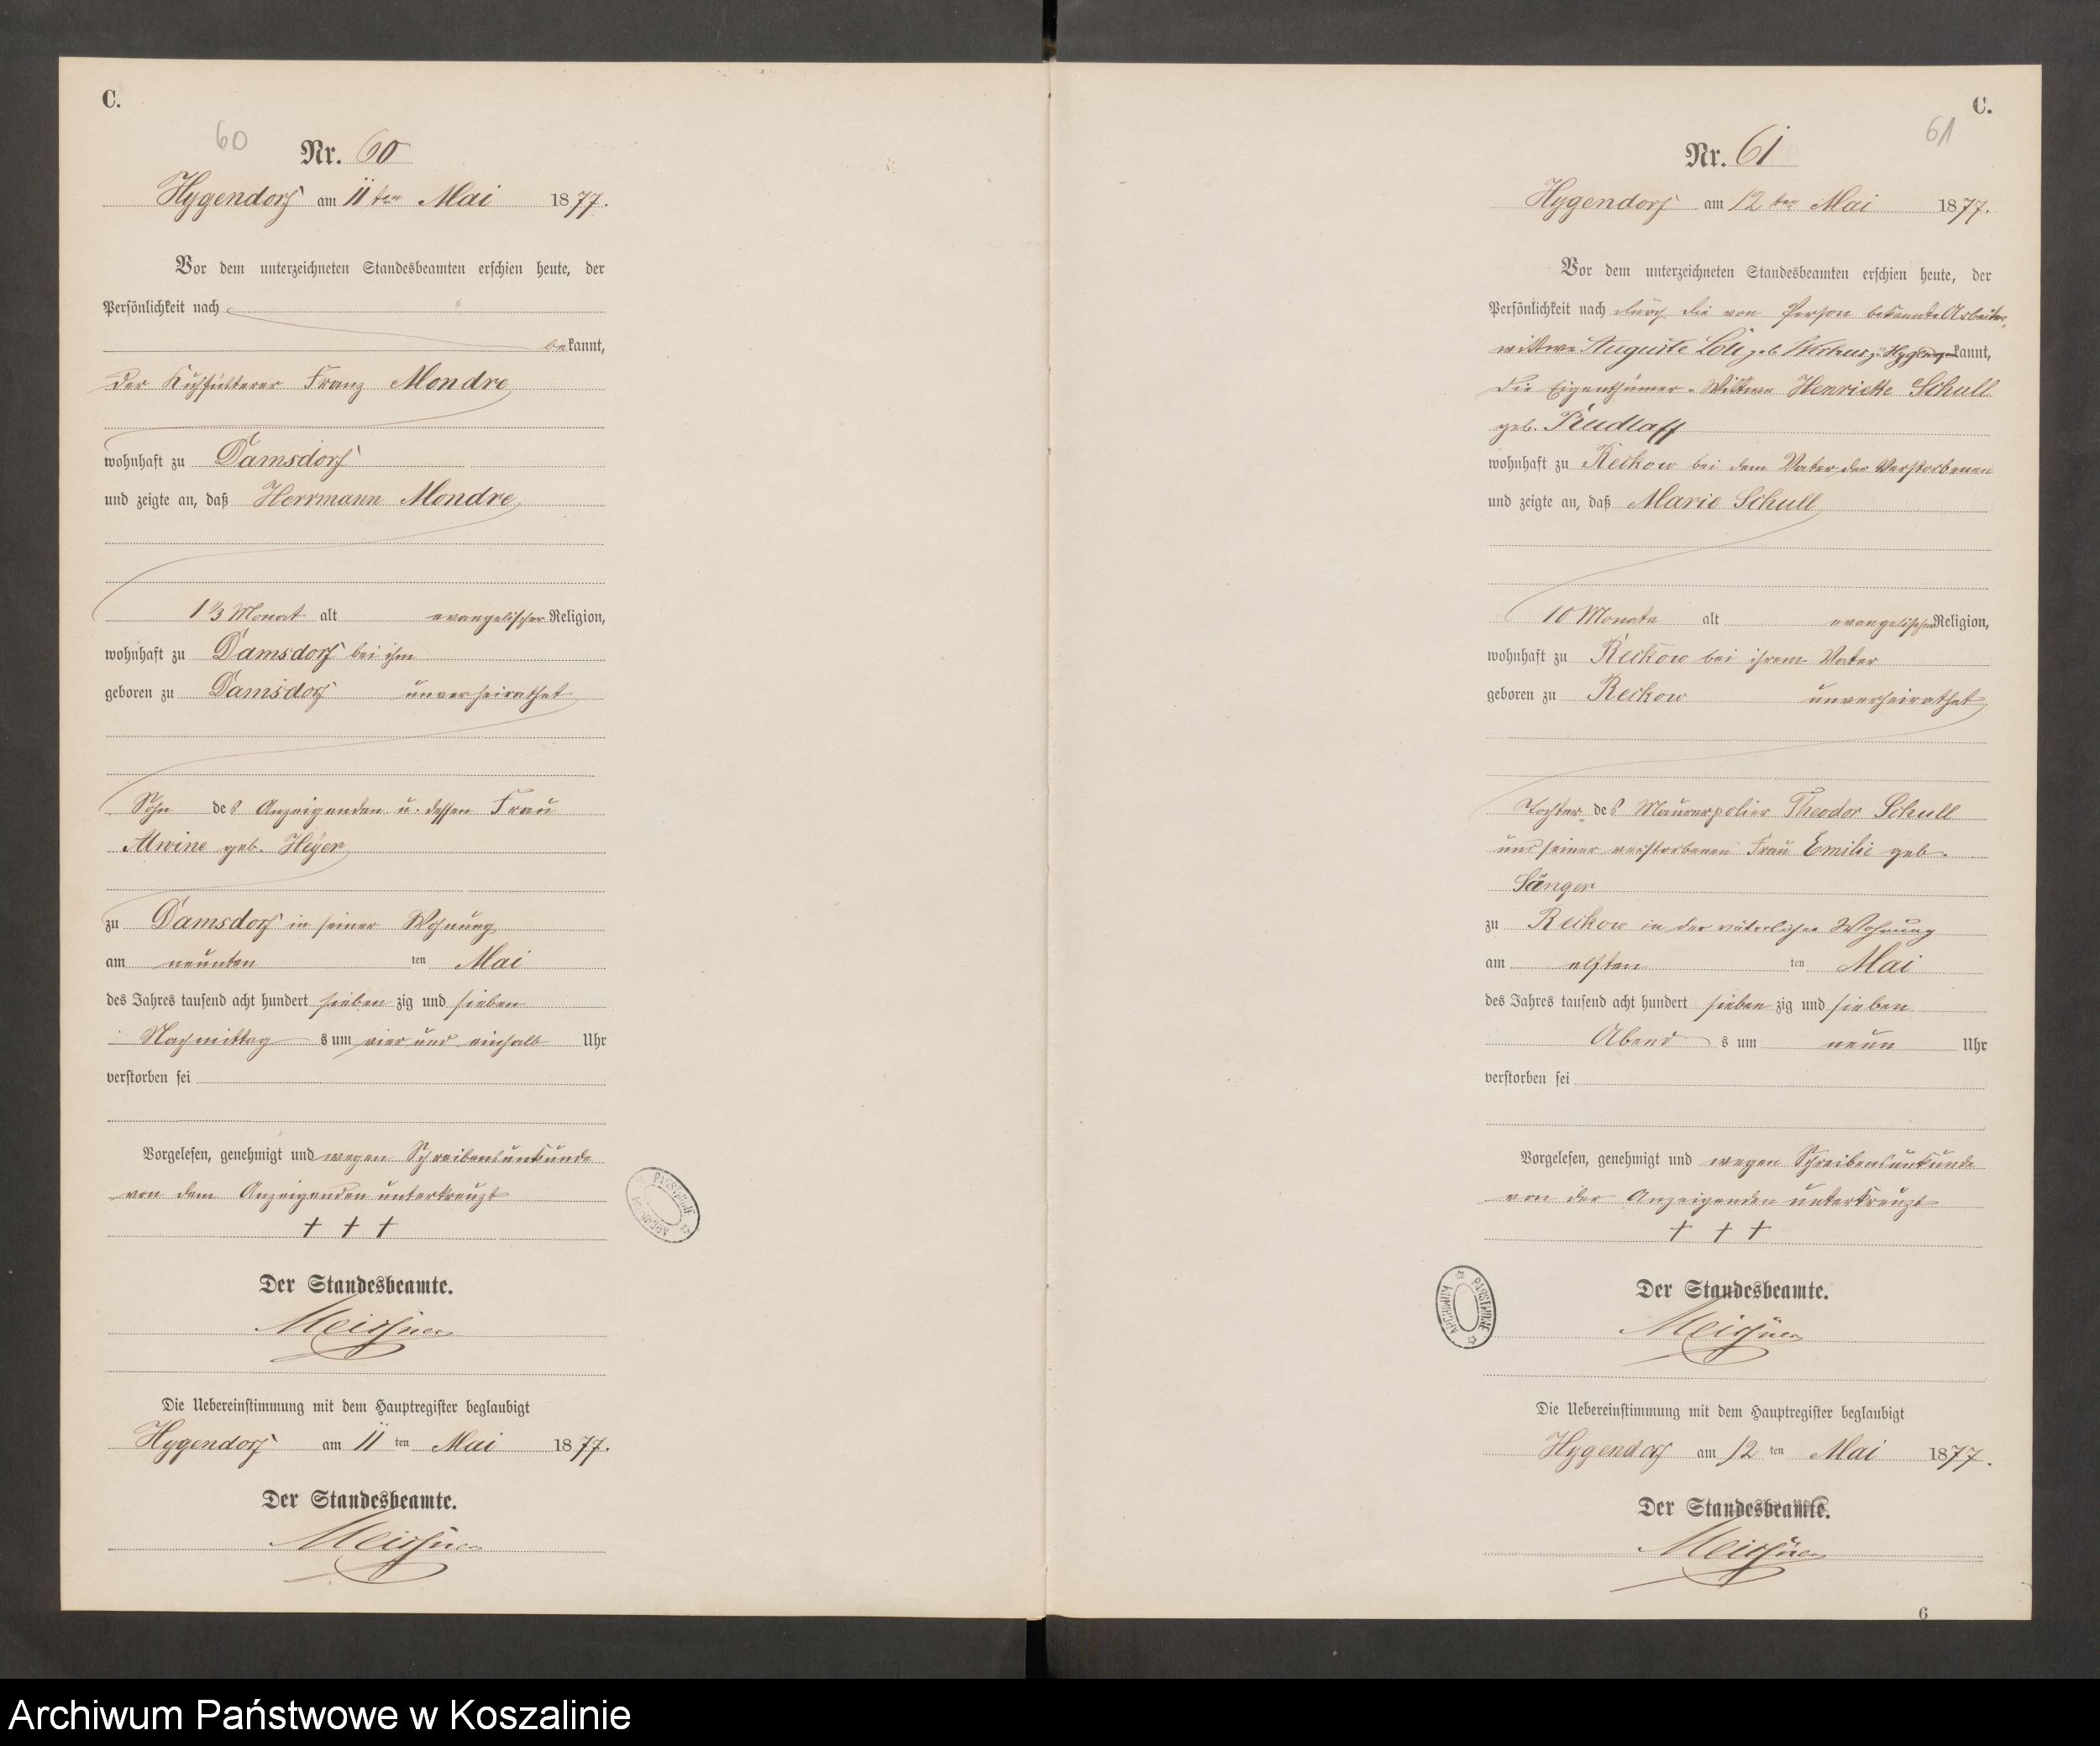 C.
60
Nr. 60
Hygendorf am 11 ten Mai 1877.
Vor dem unterzeichneten Standesbeamten erschien heute, der
Persönlichkeit nach
bekannt,
der Kuhfütterer Franz Mondre
wohnhaft zu Damsdorf
und zeigte an, daß Herrmann Mondre
1 1/3 Monat alt evangelischer Religion,
wohnhaft zu Damsdorf bei ihm
geboren zu Damsdorf unverheirathet
Sohn des Anzeigenden u. dessen Frau
Alwine geb. Heyer
zu Damsdorf in seiner Wohnung
am neunten ten Mai
des Jahres tausend acht hundert sieben zig und sieben
Nachmittag s um vier und einhalb Uhr
verstorben sei
Vorgelesen, genehmigt und wegen Schreibensunkunde
von dem Anzeigenden unterkreuzt
+ + +
Der Standesbeamte.
Die Uebereinstimmung mit dem Hauptregister beglaubigt
Hygendorf am 11 ten Mai 1877.
Der Standesbeamte.
ARCHIWUM PAŃSTWOWE
C.
61
Nr. 61
Hygendorf am 12 ten Mai 1877.
Vor dem unterzeichneten Standesbeamten erschien heute, der
Persönlichkeit nach durch die von Person bekannte Arbeiter-
wittwe Auguste geb. kannt,
die Eigenthümer-Wittwe Henriette Schull
geb. Rudlaff
wohnhaft zu Reckow bei dem Vater der Verstorbenen
und zeigte an, daß Marie Schull
10 Monate alt evangelischer Religion,
wohnhaft zu Reckow bei ihrem Vater
geboren zu Reckow unverheirathet
Tochter des Maurerpolier Theodor Schull
und seiner verstorbenen Frau Emilie geb.
Sänger
zu Reckow in der väterlichen Wohnung
am elften ten Mai
des Jahres tausend acht hundert sieben zig und sieben
Abend s um neun Uhr
verstorben sei
Vorgelesen, genehmigt und wegen Schreibensunkunde
von der Anzeigenden unterkreuzt
+ + +
Der Standesbeamte.
ARCHIWUM PAŃSTWOWE
Die Uebereinstimmung mit dem Hauptregister beglaubigt
Hygendorf am 12 ten Mai 1877.
Der Standesbeamte.
6
Archiwum Państwowe w Koszalinie